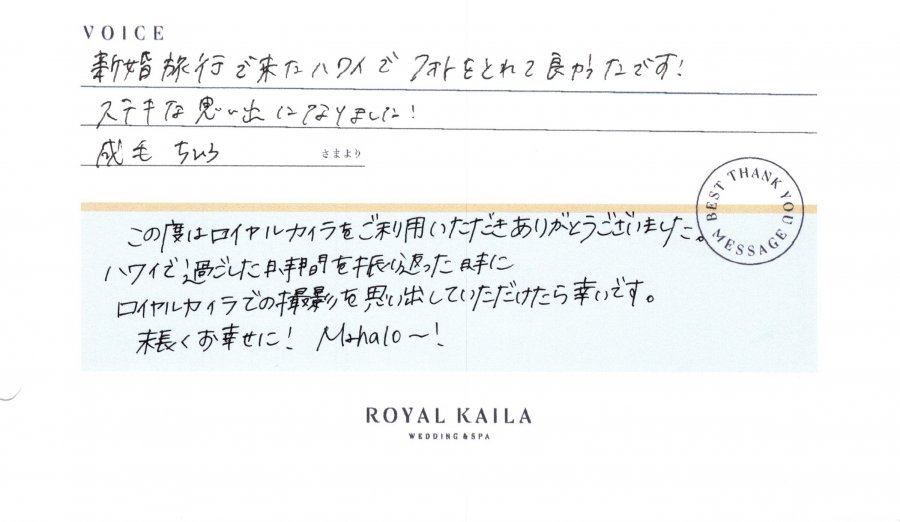 VOICE
新婚旅行で来たハワイでフォトをとれて良かったです!
ステキな思い出になりました!
成毛 ちひろ さまより
BEST THANK YOU MESSAGE
この度はロイヤルカイラをご利用いただきありがとうございました。
ハワイで過ごした時間を振り返った時に
ロイヤルカイラでの撮影を思い出していただけたら幸いです。
末長くお幸せに! Mahalo〜!
ROYAL KAILA
WEDDING & SPA